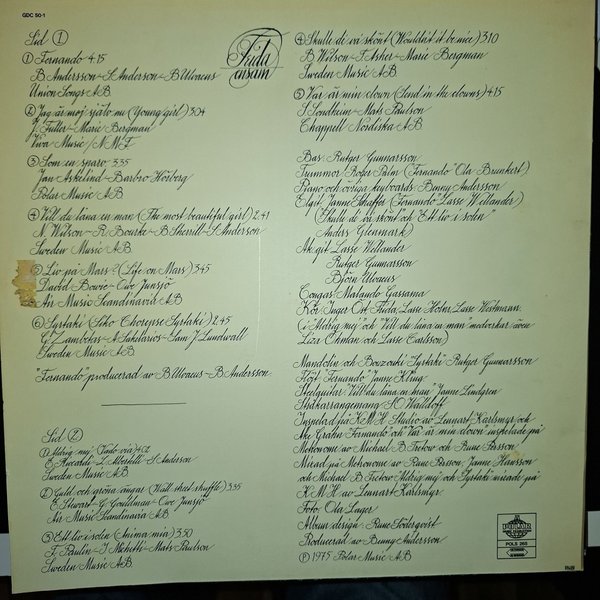 GDC 50-1
Frida
ensam
Sid 1
1 Fernando 4.15
B. Andersson-S. Anderson-B. Ulvaeus
Union Songs AB
2 Jag är mej själv nu (Young girl) 3.04
J. Fuller-Marie Bergman
Viva Music/NMF
3 Som en sparv 3.35
Jan Askelind-Barbro Hörberg
Polar Music AB
4 Vill du låna en man (The most beautiful girl) 2.41
N. Wilson-R. Bourke-B. Sherrill-S. Anderson
Sweden Music AB
5 Liv på Mars? (Life on Mars) 3.45
David Bowie-Owe Junsjö
Air Music Scandinavia AB
6 Syrtaki (Siko Chorepse Syrtaki) 2.45
G. Zambetas-A. Sakelarios-Sam J. Lundwall
Sweden Music AB
"Fernando" producerad av B. Ulvaeus-B. Andersson
Sid 2
1 Aldrig mej (Tado via) 4.02
E. Riccardi-L. Albertelli-S. Anderson
Sweden Music AB
2 Guld och gröna ängar (Wall street shuffle) 3.35
E. Stewart-G. Gouldman-Owe Junsjö
Air Music Scandinavia AB
3 Ett liv i solen (Anima mia) 3.50
F. Paulin-I. Michetti-Mats Paulson
Sweden Music AB
4 Skulle de va skönt (Wouldn't it be nice) 3.10
B. Wilson-T. Asher-Marie Bergman
Sweden Music AB
5 Var är min clown (Send in the clowns) 4.15
S. Sondheim-Mats Paulson
Chappell Nordiska AB
Bas: Rutger Gunnarsson
Trummor: Roger Palm (Fernando" Ola Brunkert)
Piano och övriga keyboards: Benny Andersson
El.git: Janne Schaffer (Fernando" Lasse Wellander)
(Skulle de va skönt och Ett liv i solen"
Anders Glenmark)
Ak.git: Lasse Wellander
Rutger Gunnarsson
Björn Ulvaeus
Congas: Malando Gassama
Kör: Inger Öst, Frida, Lasse Holm, Lasse Westmann.
(i Aldrig mej och "Vill du låna en man" medverkar även
Liza Öhman och Lasse Carlsson)
Mandolin och Bouzouki "Syrtaki" Rutger Gunnarsson
Flöjt "Fernando" Janne Kling
Steelguitar "Vill du låna en man" Janne Lindgren
Stråkarrangemang S.O. Walldoff
Inspelad på K.M.H. Studio av Lennart Karlsmyr och
Åke Grahn. Fernando" och "Var är min clown" inspelade på
Metronome av Michael B. Tretow och Rune Persson
Mixad på Metronome av Rune Persson, Janne Hansson
och Michael B. Tretow. Aldrig mej och Syrtaki mixade på
K.M.H. av Lennart Karlsmyr
Foto: Ola Lager
Album design: Rune Söderqvist
Producerad av Benny Andersson
℗ 1975 Polar Music AB
POLS 265